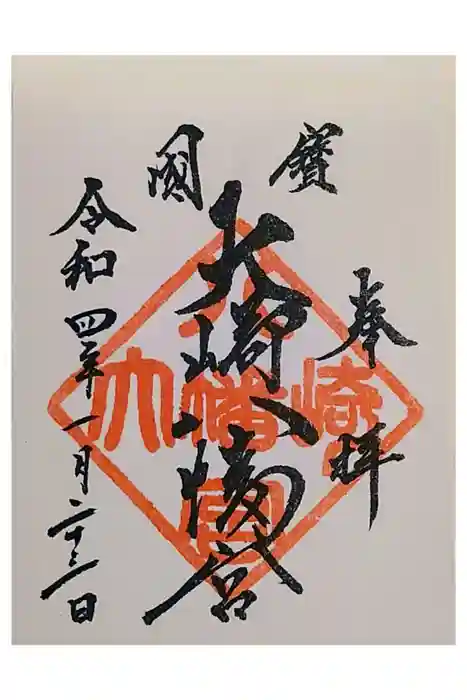 奉拝
國寶
大崎八幡宮
令和四年一月二十三日
大崎八幡宮